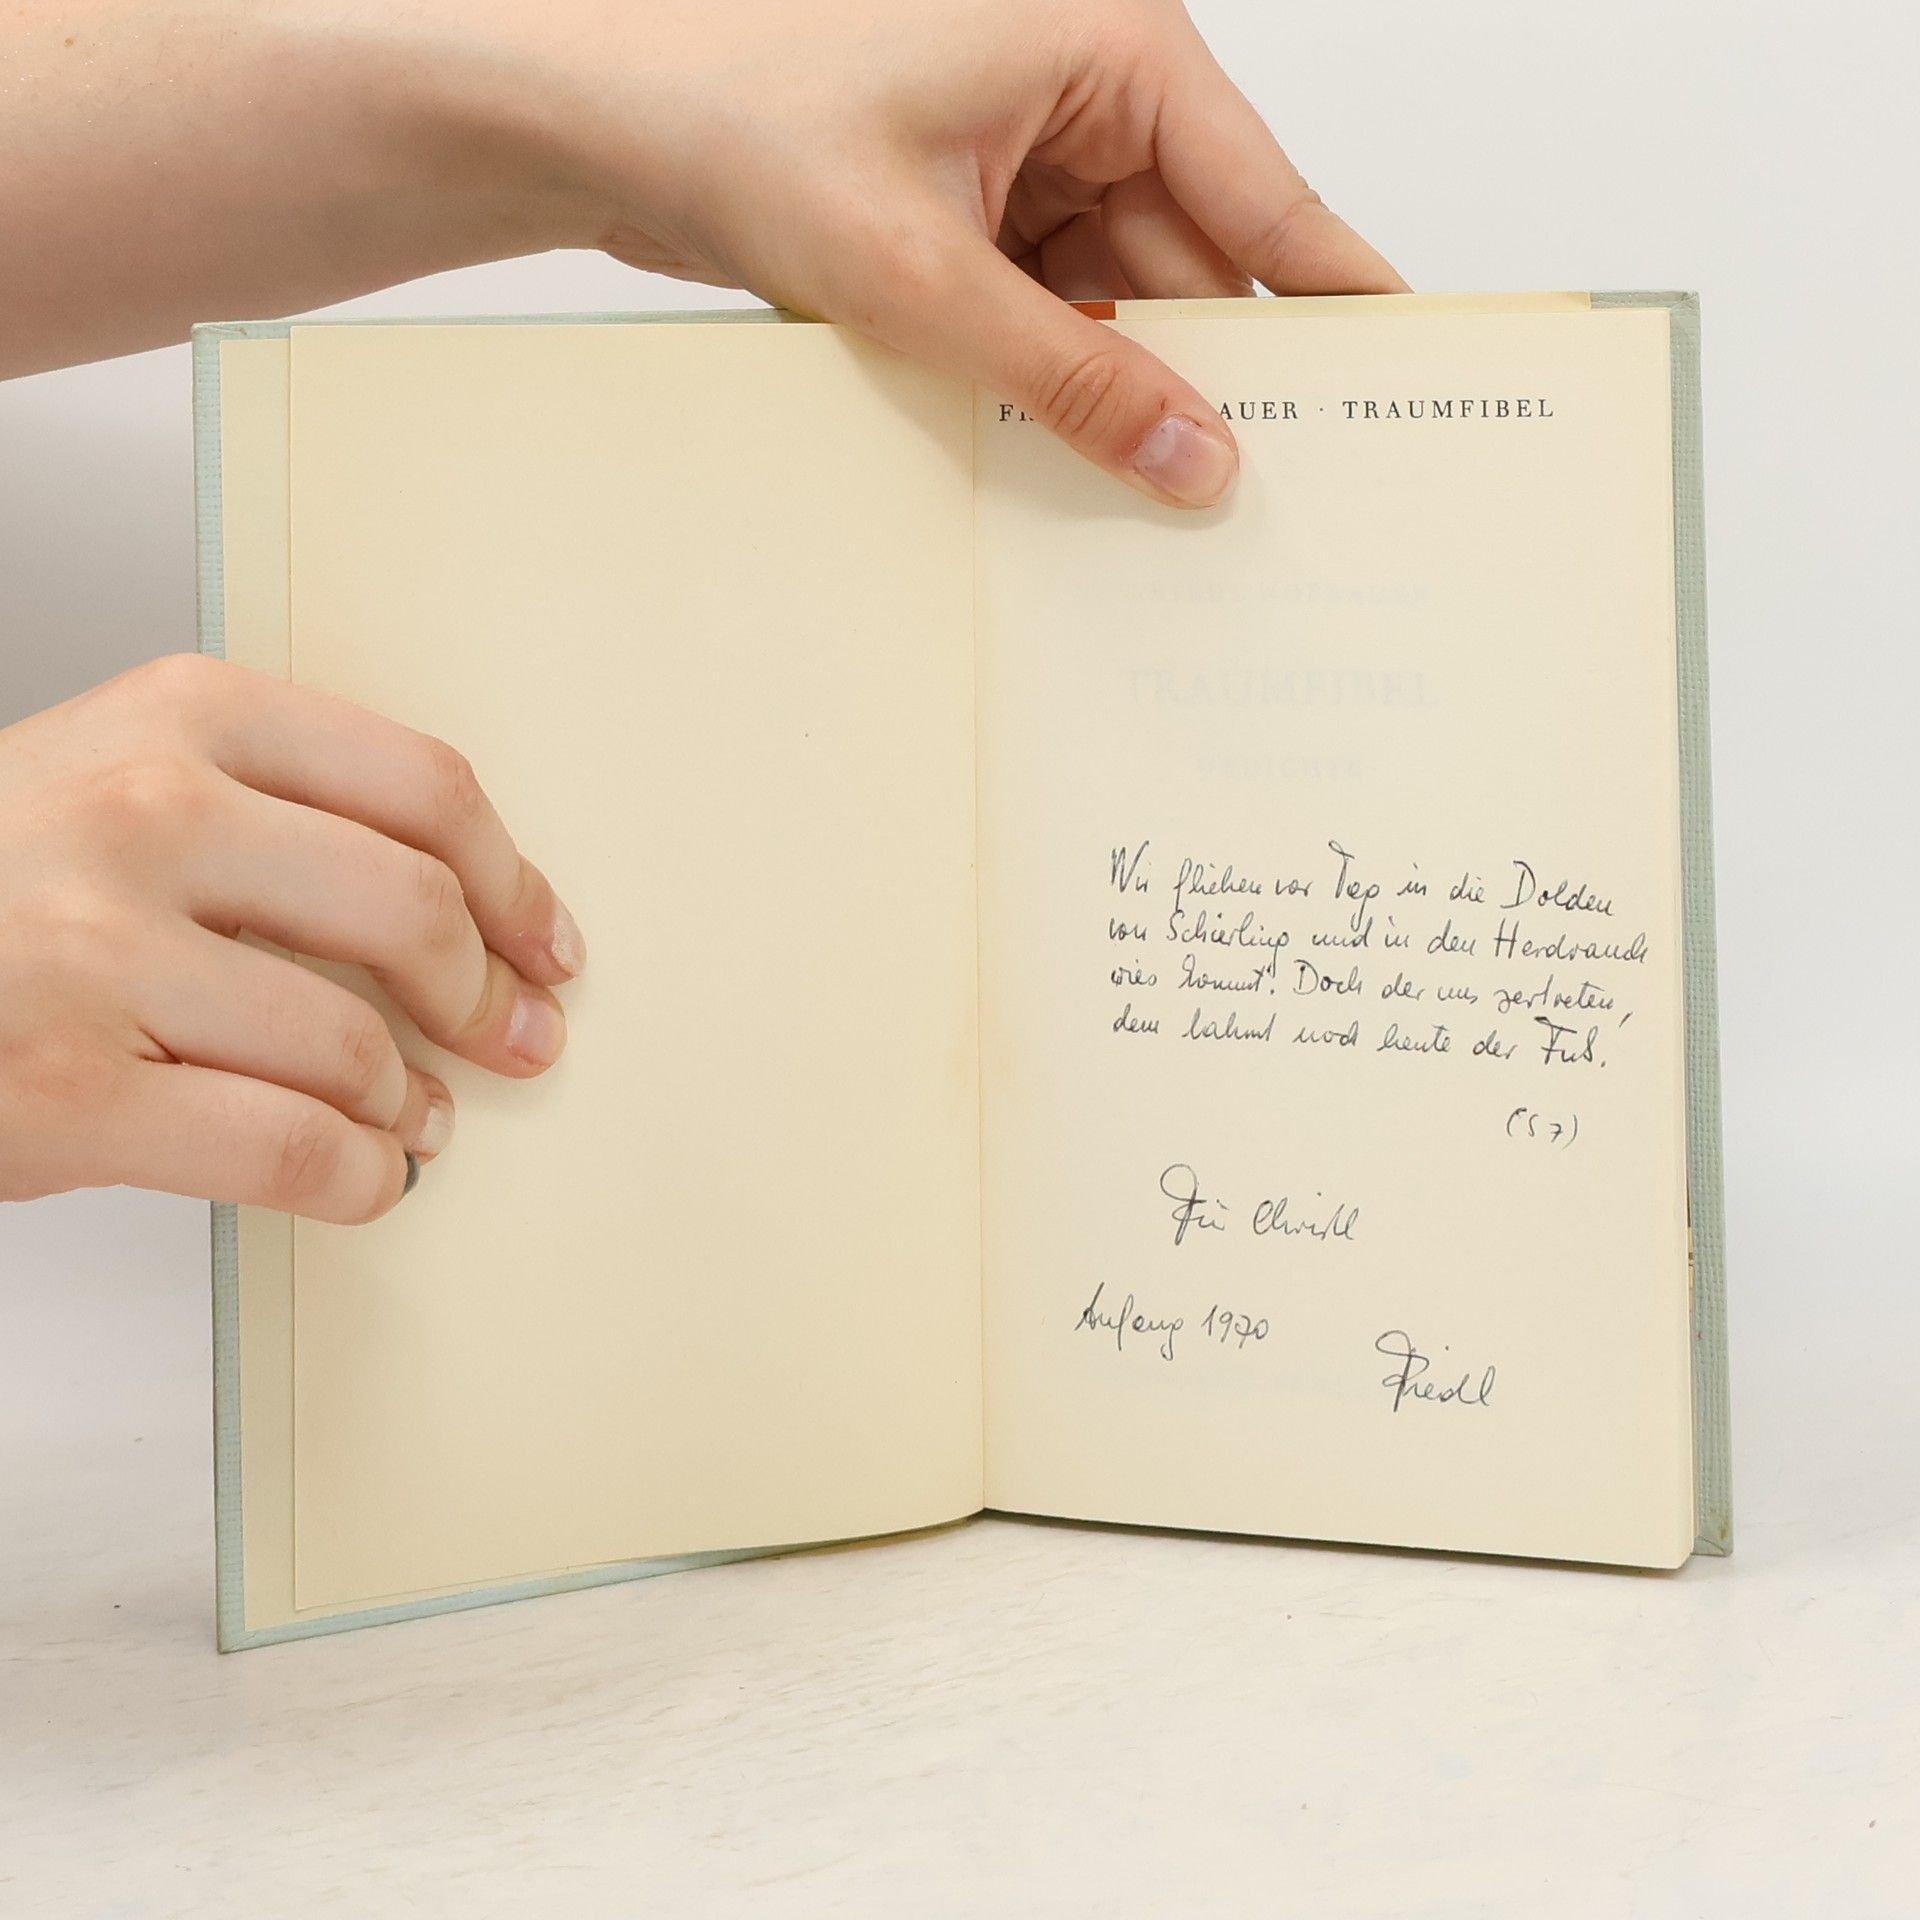 AUER · TRAUMFIBEL
TRAUMFIBEL
GEDICHTE
Wir fliehen vor Tag in die Dolden
von Schierling und in den Herdrauch
wies kommt. Doch der uns zertreten,
dem lahmt noch heute der Fuß.
(S 7)
Für Christl
Anfang 1970
Friedl